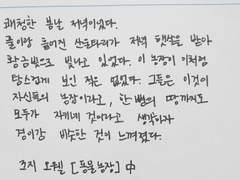 쾌청한 봄날 저녁이었다.
풀이랑 들어진 산울타리가 저녁 햇살을 받아
황금빛으로 빛나고 있었다. 이 농장이 이처럼
탐스럽게 보인 적은 없었다. 그들은 이것이
자신들의 농장이라고, 한 뼘의 땅까지도
모두가 자기네 것이라고 생각하자
경이감 비슷한 것이 느껴졌다.
조지 오웰 [동물농장] 中